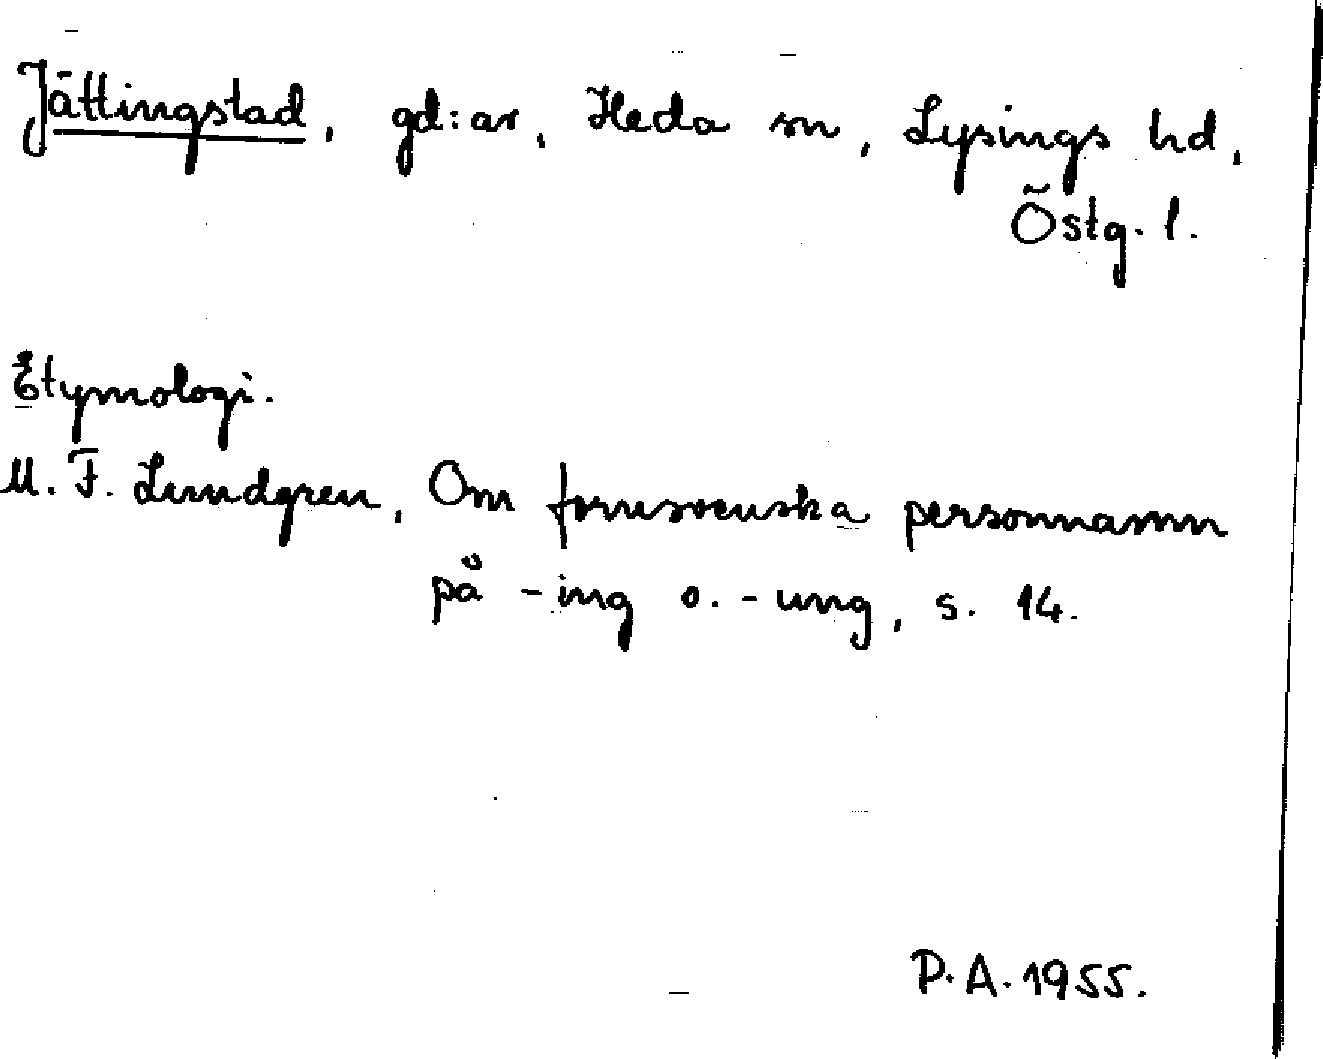 Jättingstad, gd:ar, Heda sn, Lysings hd,
Östg. l.
Etymologi.
M. F. Lundgren, Om fornsvenska personnamn
på -ing o. -ung, s. 14.
P. A. 1955.